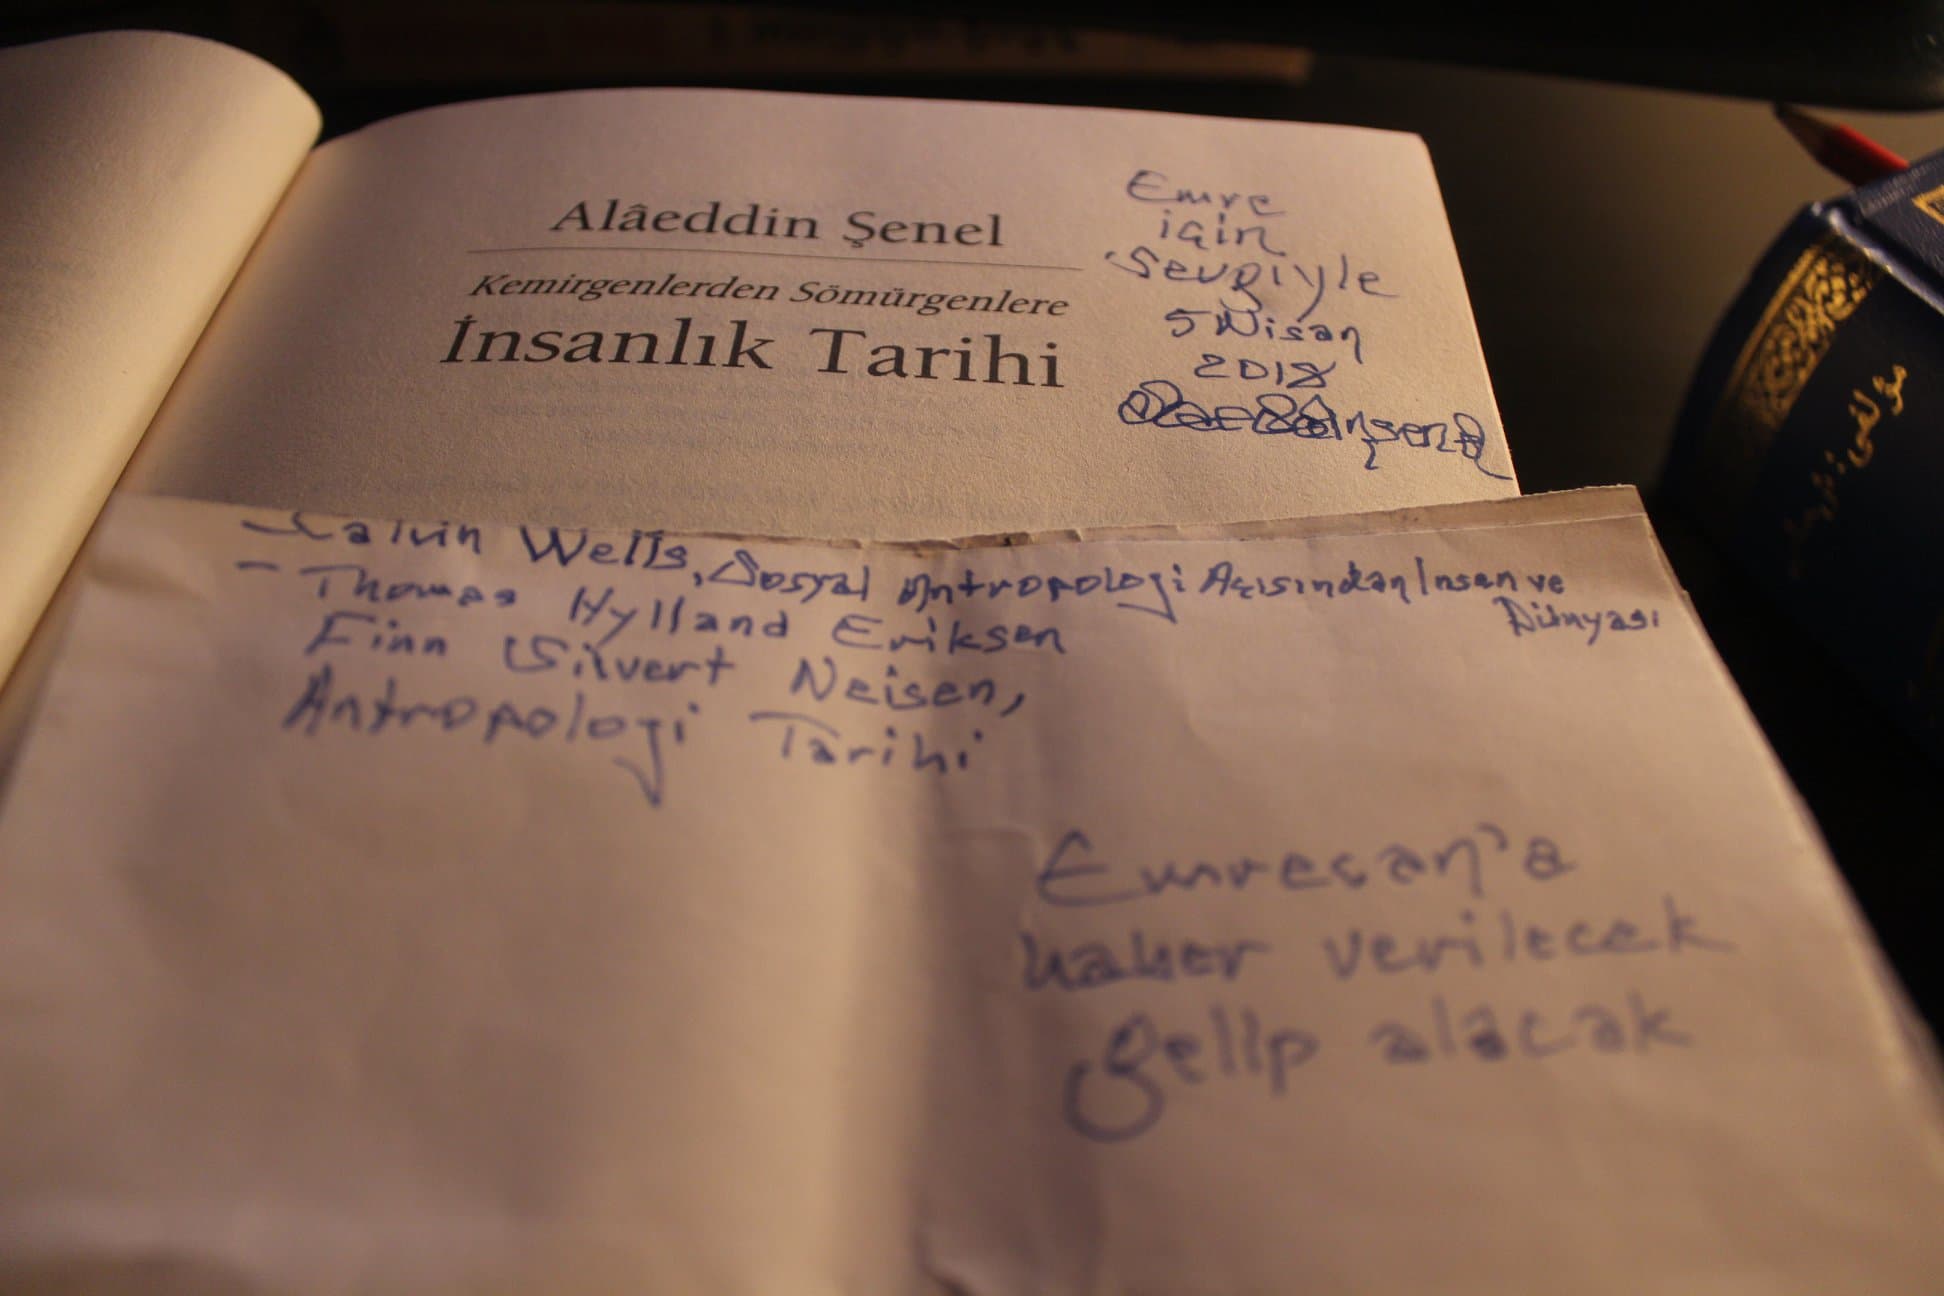 Alâeddin Şenel
Kemirgenlerden Sömürgenlere
İnsanlık Tarihi
Emre
için
Sevgiyle
5 Nisan
2018
Alaeddinşenel
- Calvin Wells, Sosyal Antropoloji Açısından İnsan ve
Dünyası
- Thomas Hylland Eriksen
Finn Sivert Neisen,
Antropoloji Tarihi
Emrecan'a
haber verilecek
gelip alacak